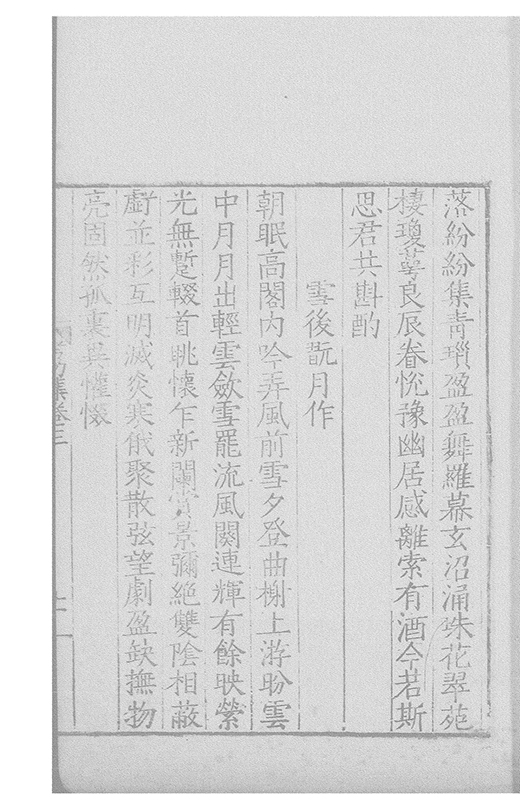 落紛紛集青瑣盈盈舞羅幕玄沼涌珠花翠苑
棲瓊萼良辰眷悅豫幽居感離索有酒今若斯
思君共斟酌
雪後翫月作
朝眠高閣內吟弄風前雪夕登曲榭上游盼雲
中月月出輕雲斂雪罷流風闋連輝有餘映縈
光無蹔輟首眺懷乍新闌賞景彌絕雙陰相蔽
虧並彩互明滅炎寒俄聚散弦望劇盈缺撫物
亮固然孤裏異懽惙
集卷三